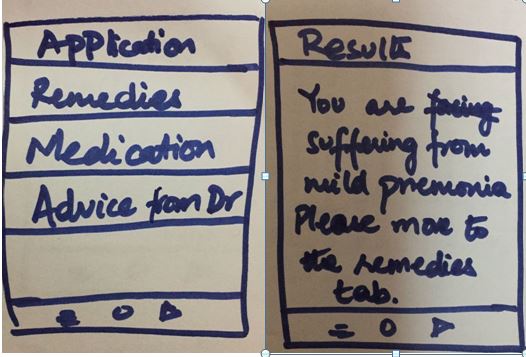 Application
Remedies
Medication
Advice from Dr
Results
You are facing
suffering from
mild pnemonia
Please move to
the remedies
tab.